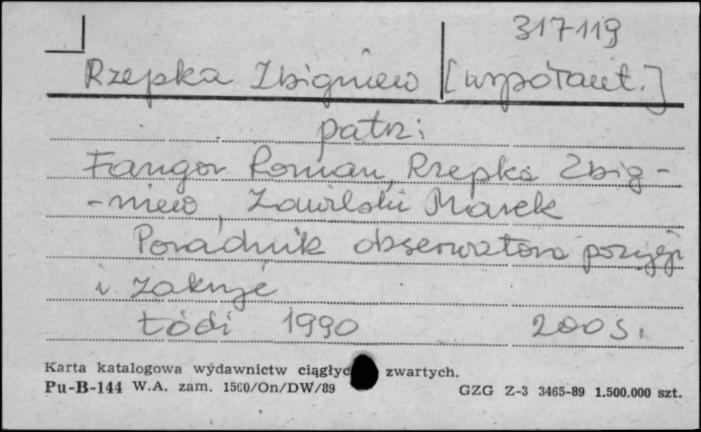 317119
Rzepka Zbigniew [współaut.]
patrz:
Fangor Roman, Rzepka Zbig-
-niew, Zawilski Marek
Poradnik obserwatora pozycji
i zakryć
Łódź 1990 200 s.
Karta katalogowa wydawnictw ciągłyc zwartych.
Pu-B-144 W.A. zam. 1560/On/DW/89 GZG Z-3 3465-89 1.500.000 szt.